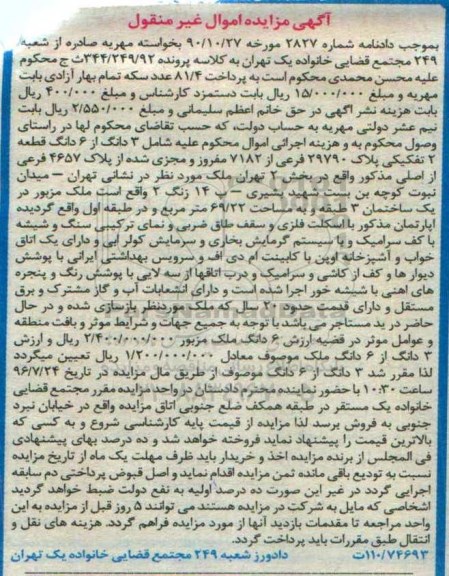 آگهی مزایده اموال غیر منقول
بموجب دادنامه شماره ۲۸۲۷ مورخه ۹۰/۱۰/۲۷ بخواسته مهریه صادره از شعبه
۲۴۹ مجتمع قضایی خانواده یک تهران به کلاسه پرونده ۳۴۴/۲۴۹/۹۲ث ج محکوم
علیه محسن محمدی محکوم است به پرداخت ۸۱/۴ عدد سکه تمام بهار آزادی بابت
مهریه و مبلغ ۱۵/۰۰۰/۰۰۰ ریال بابت دستمزد کارشناس و مبلغ ۴۰۰/۰۰۰ ریال
بابت هزینه نشر آگهی در حق خانم اعظم سلیمانی و مبلغ ۲/۵۵۰/۰۰۰ ریال بابت
نیم عشر دولتی مهریه به حساب دولت، که حسب تقاضای محکوم لها در راستای
وصول محکوم به و هزینه اجرائی اموال محکوم علیه شامل ۳ دانگ از ۶ دانگ قطعه
۲ تفکیکی پلاک ۲۹۷۹۰ فرعی از ۷۱۸۲ مفروز و مجزی شده از پلاک ۴۶۵۷ فرعی
از اصلی مذکور واقع در بخش ۲ تهران ملک مورد نظر در نشانی تهران – میدان
نبوت کوچه بن بست شهید بشیری – پ ۱۴ زنگ ۲ واقع است ملک مزبور در
یک ساختمان ۳ طبقه و به مساحت ۶۹/۲۲ متر مربع و در طبقه اول واقع گردیده
آپارتمان مذکور با اسکلت فلزی و سقف طاق ضربی و نمای ترکیبی سنگ و شیشه
با کف سرامیک و با سیستم گرمایش بخاری و سرمایش کولر آبی و دارای یک اتاق
خواب و آشپزخانه اوپن با کابینت ام دی اف و سرویس بهداشتی ایرانی با پوشش
دیوار ها و کف از کاشی و سرامیک و درب اتاقها از سه لایی با پوشش رنگ و پنجره
های اهنی با شیشه خور اجرا شده است و دارای انشعابات آب و گاز مشترک و برق
مستقل و دارای قدمت حدود ۲۰ سال که ملک موردنظر بازسازی شده و در حال
حاضر در ید مستاجر می باشد با توجه به جمیع جهات و شرایط موثر و بافت منطقه
و عوامل موثر در قضیه ارزش ۶ دانگ ملک مزبور ۲/۴۰۰/۰۰۰/۰۰۰ ریال و ارزش
۳ دانگ از ۶ دانگ ملک موصوف معادل ۱/۲۰۰/۰۰۰/۰۰۰ ریال تعیین میگردد
لذا مقرر شد ۳ دانگ از ۶ دانگ موصوف از طریق مال مزایده در تاریخ ۹۶/۷/۲۴
ساعت ۱۰:۳۰ با حضور نماینده محترم دادستان در واحد مزایده مقرر مجتمع قضایی
خانواده یک مستقر در طبقه همکف ضلع جنوبی اتاق مزایده واقع در خیابان نبرد
جنوبی به فروش برسد لذا مزایده از قیمت پایه کارشناسی شروع و به کسی که
بالاترین قیمت را پیشنهاد نماید فروخته خواهد شد و ده درصد بهای پیشنهادی
فی المجلس از برنده مزایده اخذ و خریدار باید ظرف مهلت یک ماه از تاریخ مزایده
نسبت به تودیع باقی مانده ثمن مزایده اقدام نماید و اصل قبوض پرداختی دم سابقه
اجرایی گردد در غیر این صورت ده درصد اولیه به نفع دولت ضبط خواهد گردید
اشخاصی که مایل به شرکت در مزایده هستند می توانند ۵ روز قبل از مزایده به این
واحد مراجعه تا مقدمات بازدید آنها از مورد مزایده فراهم گردد. هزینه های نقل و
انتقال طبق مقررات باید پرداخت گردد.
۱۱۰/۷۴۶۹۳ت دادورز شعبه ۲۴۹ مجتمع قضائی خانواده یک تهران